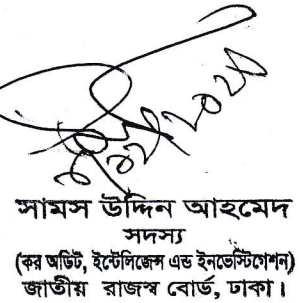 সামস উদ্দিন আহমেদ
সদস্য
(কর অডিট, ইন্টেলিজেন্স এন্ড ইনভেস্টিগেশন)
জাতীয় রাজস্ব বোর্ড, ঢাকা।